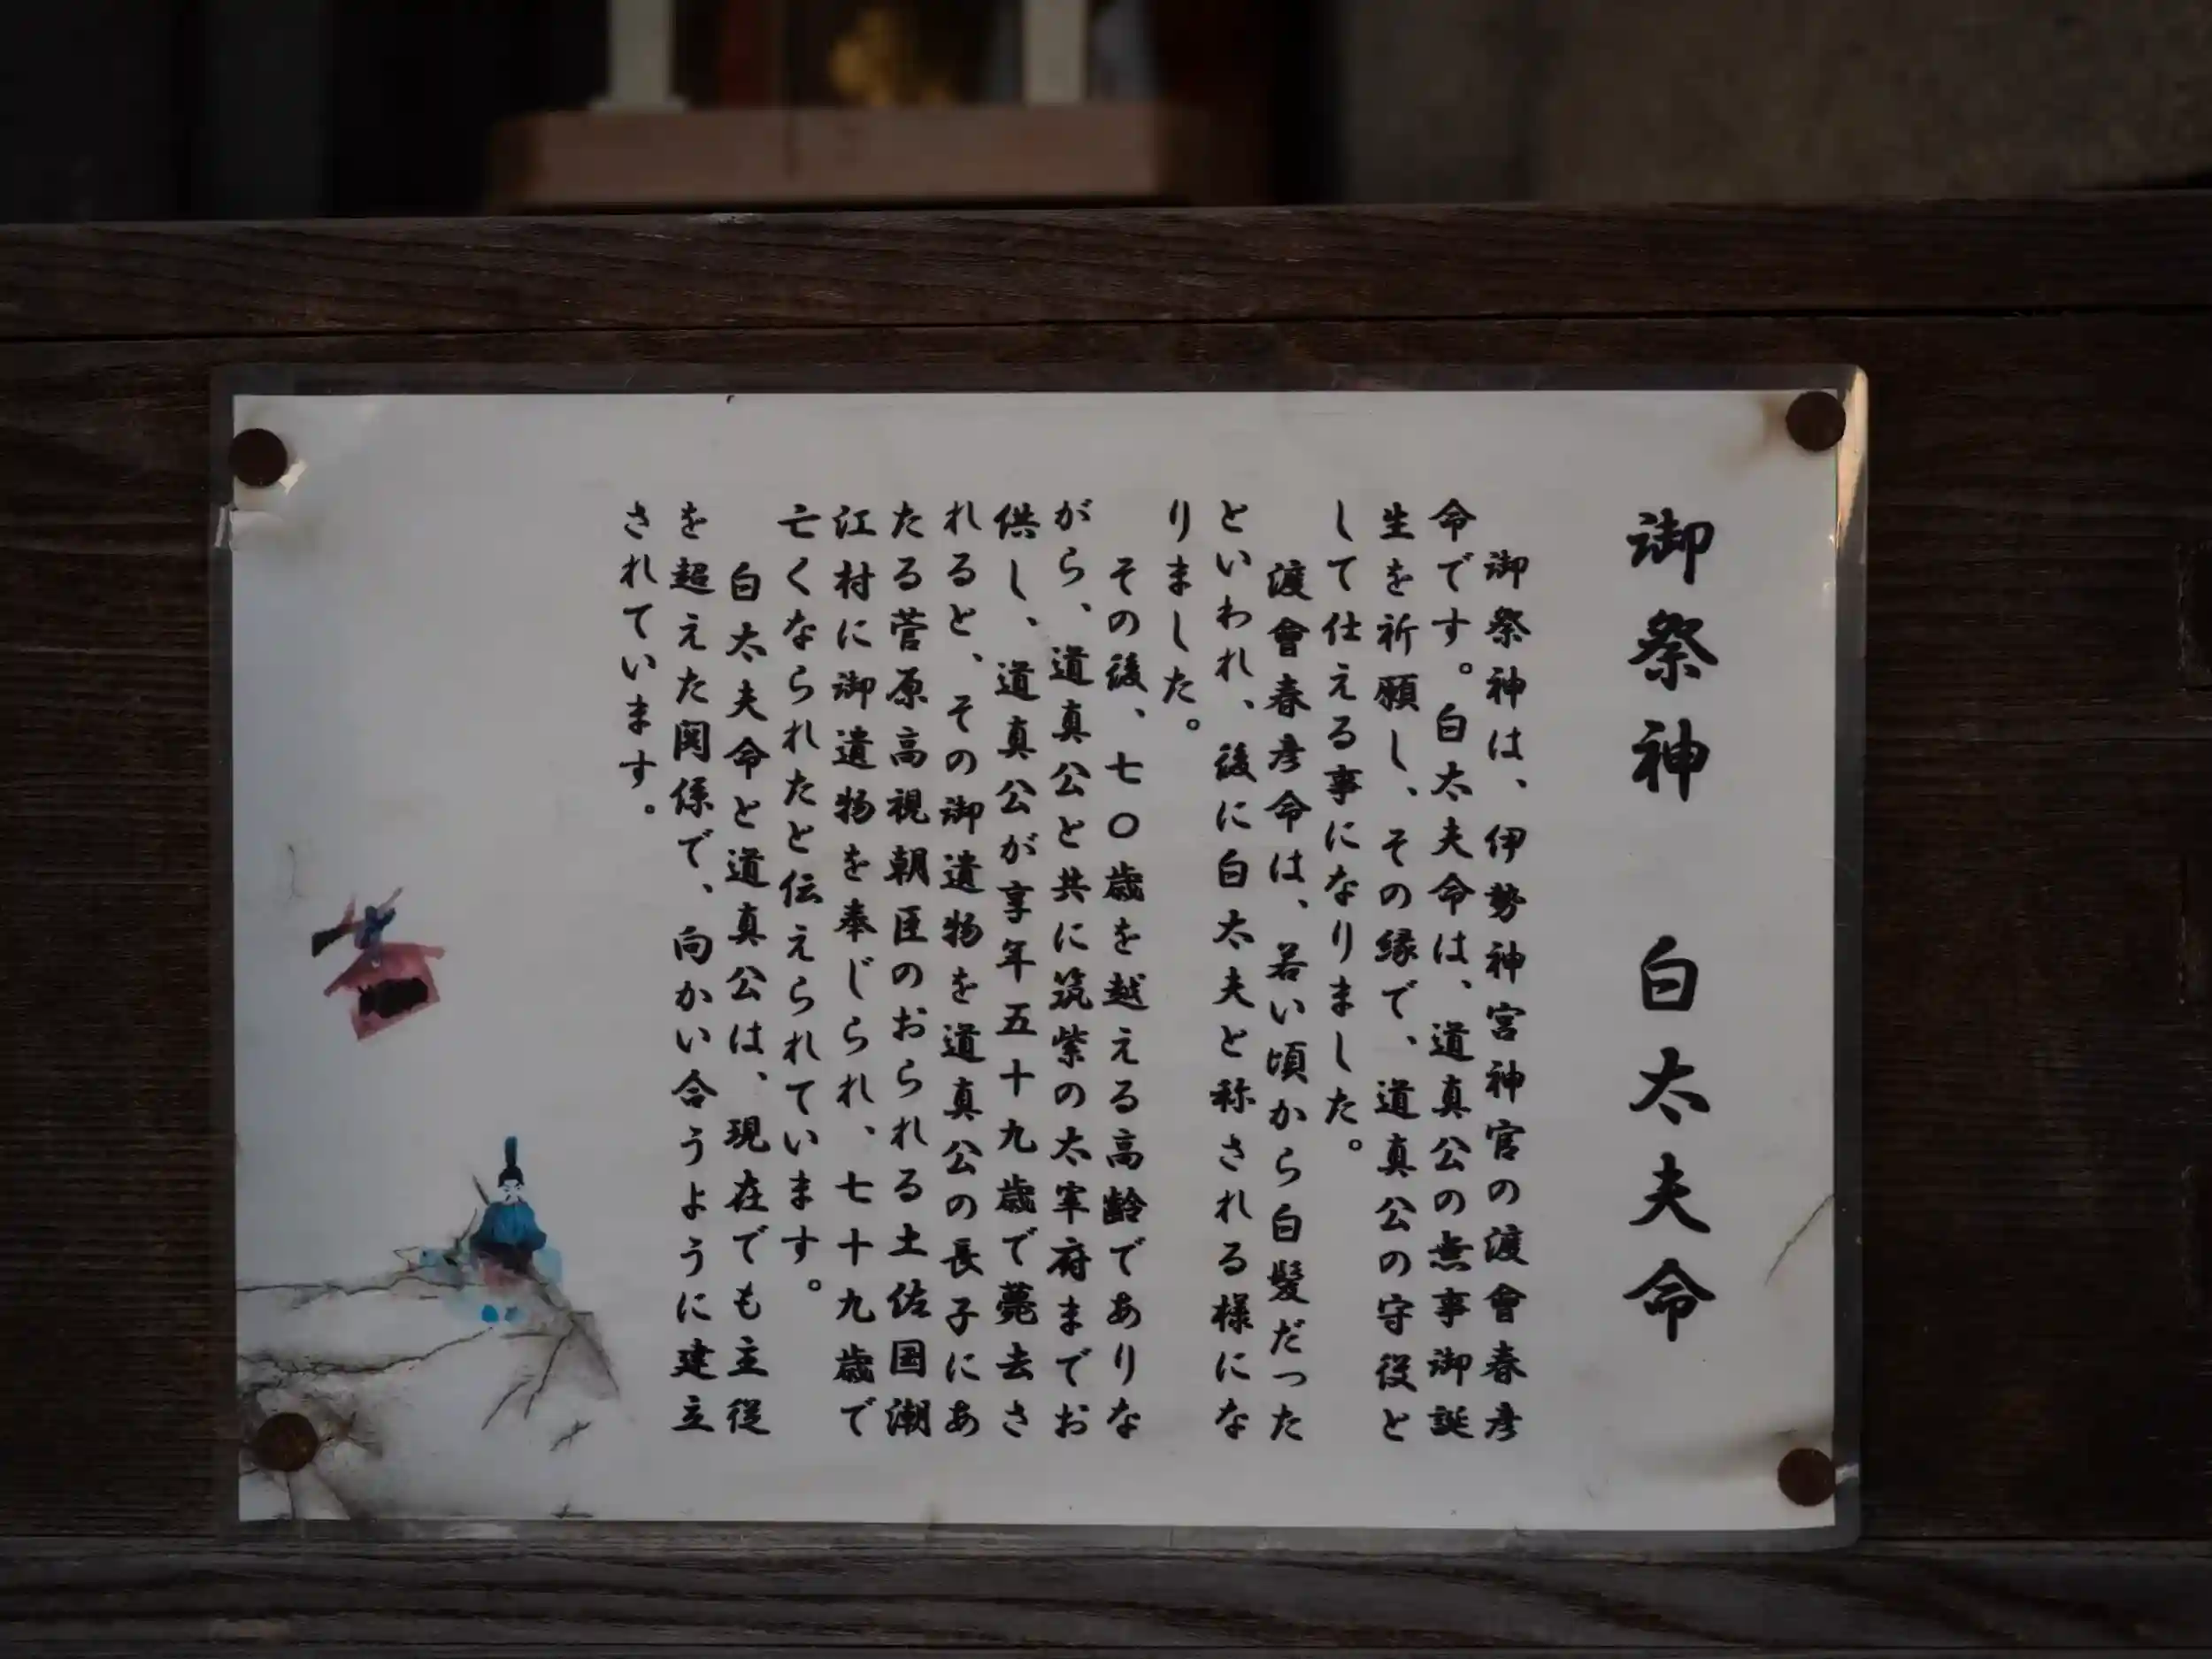 御祭神 白太夫命
御祭神は、伊勢神宮神官の渡會春彦
命です。白太夫命は、道真公の無事御誕
生を祈願し、その縁で、道真公の守役と
して仕える事になりました。
渡會春彦命は、若い頃から白髪だった
といわれ、後に白太夫と称される様にな
りました。
その後、七〇歳を越える高齢でありな
がら、道真公と共に筑紫の太宰府までお
供し、道真公が享年五十九歳で薨去さ
れると、その御遺物を道真公の長子にあ
たる菅原高視朝臣のおられる土佐国潮
江村に御遺物を奉じられ、七十九歳で
亡くなられたと伝えられています。
白太夫命と道真公は、現在でも主従
を超えた関係で、向かい合うように建立
されています。